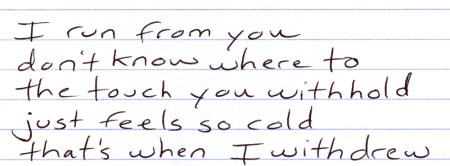 I run from you
don't know where to
the touch you withhold
just feels so cold
that's when I withdrew